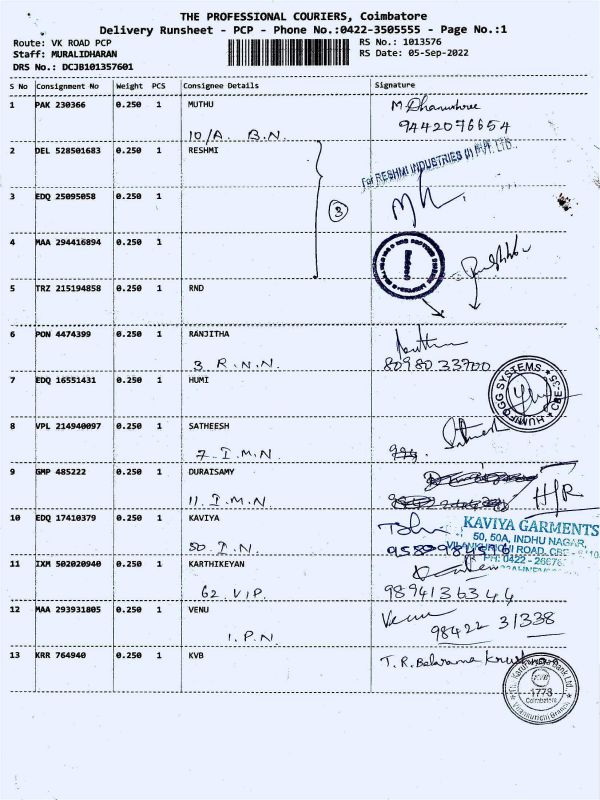 THE PROFESSIONAL COURIERS, Coimbatore
Delivery Runsheet - PCP - Phone No.:0422-3505555 - Page No.:1
Route: VK ROAD PCP
Staff: MURALIDHARAN
DRS No.: DCJB101357601
RS No.: 1013576
RS Date: 05-Sep-2022
S No Consignment No Weight PCS Consignee Details Signature
1 PAK 230366 0.250 1 MUTHU M. Dhanushree
10/A. B.N. 9442076654
2 DEL 528501683 0.250 1 RESHMI For RESHMI INDUSTRIES (I) PVT. LTD.,
3 EDQ 25095058 0.250 1
3
4 MAA 294416894 0.250 1
5 TRZ 215194858 0.250 1 RND
6 PON 4474399 0.250 1 RANJITHA
3 R.N.N. 8098033700
7 EDQ 16551431 0.250 1 HUMI
HUMIFOGG SYSTEMS CBE-35
8 VPL 214940097 0.250 1 SATHEESH
7. I.M.N
9 GMP 485222 0.250 1 DURAISAMY
11. I.M.N H/R
10 EDQ 17410379 0.250 1 KAVIYA KAVIYA GARMENTS
50. I.N. 50, 50A, INDHU NAGAR,
ROAD, CBE -
PH: 0422 -
11 IXM 502020940 0.250 1 KARTHIKEYAN
62. V.I.P. 9894136344
12 MAA 293931805 0.250 1 VENU Venu
1. P.N. 98422 31338
13 KRR 764940 0.250 1 KVB T.R.Balarama
1773
Coimbatore